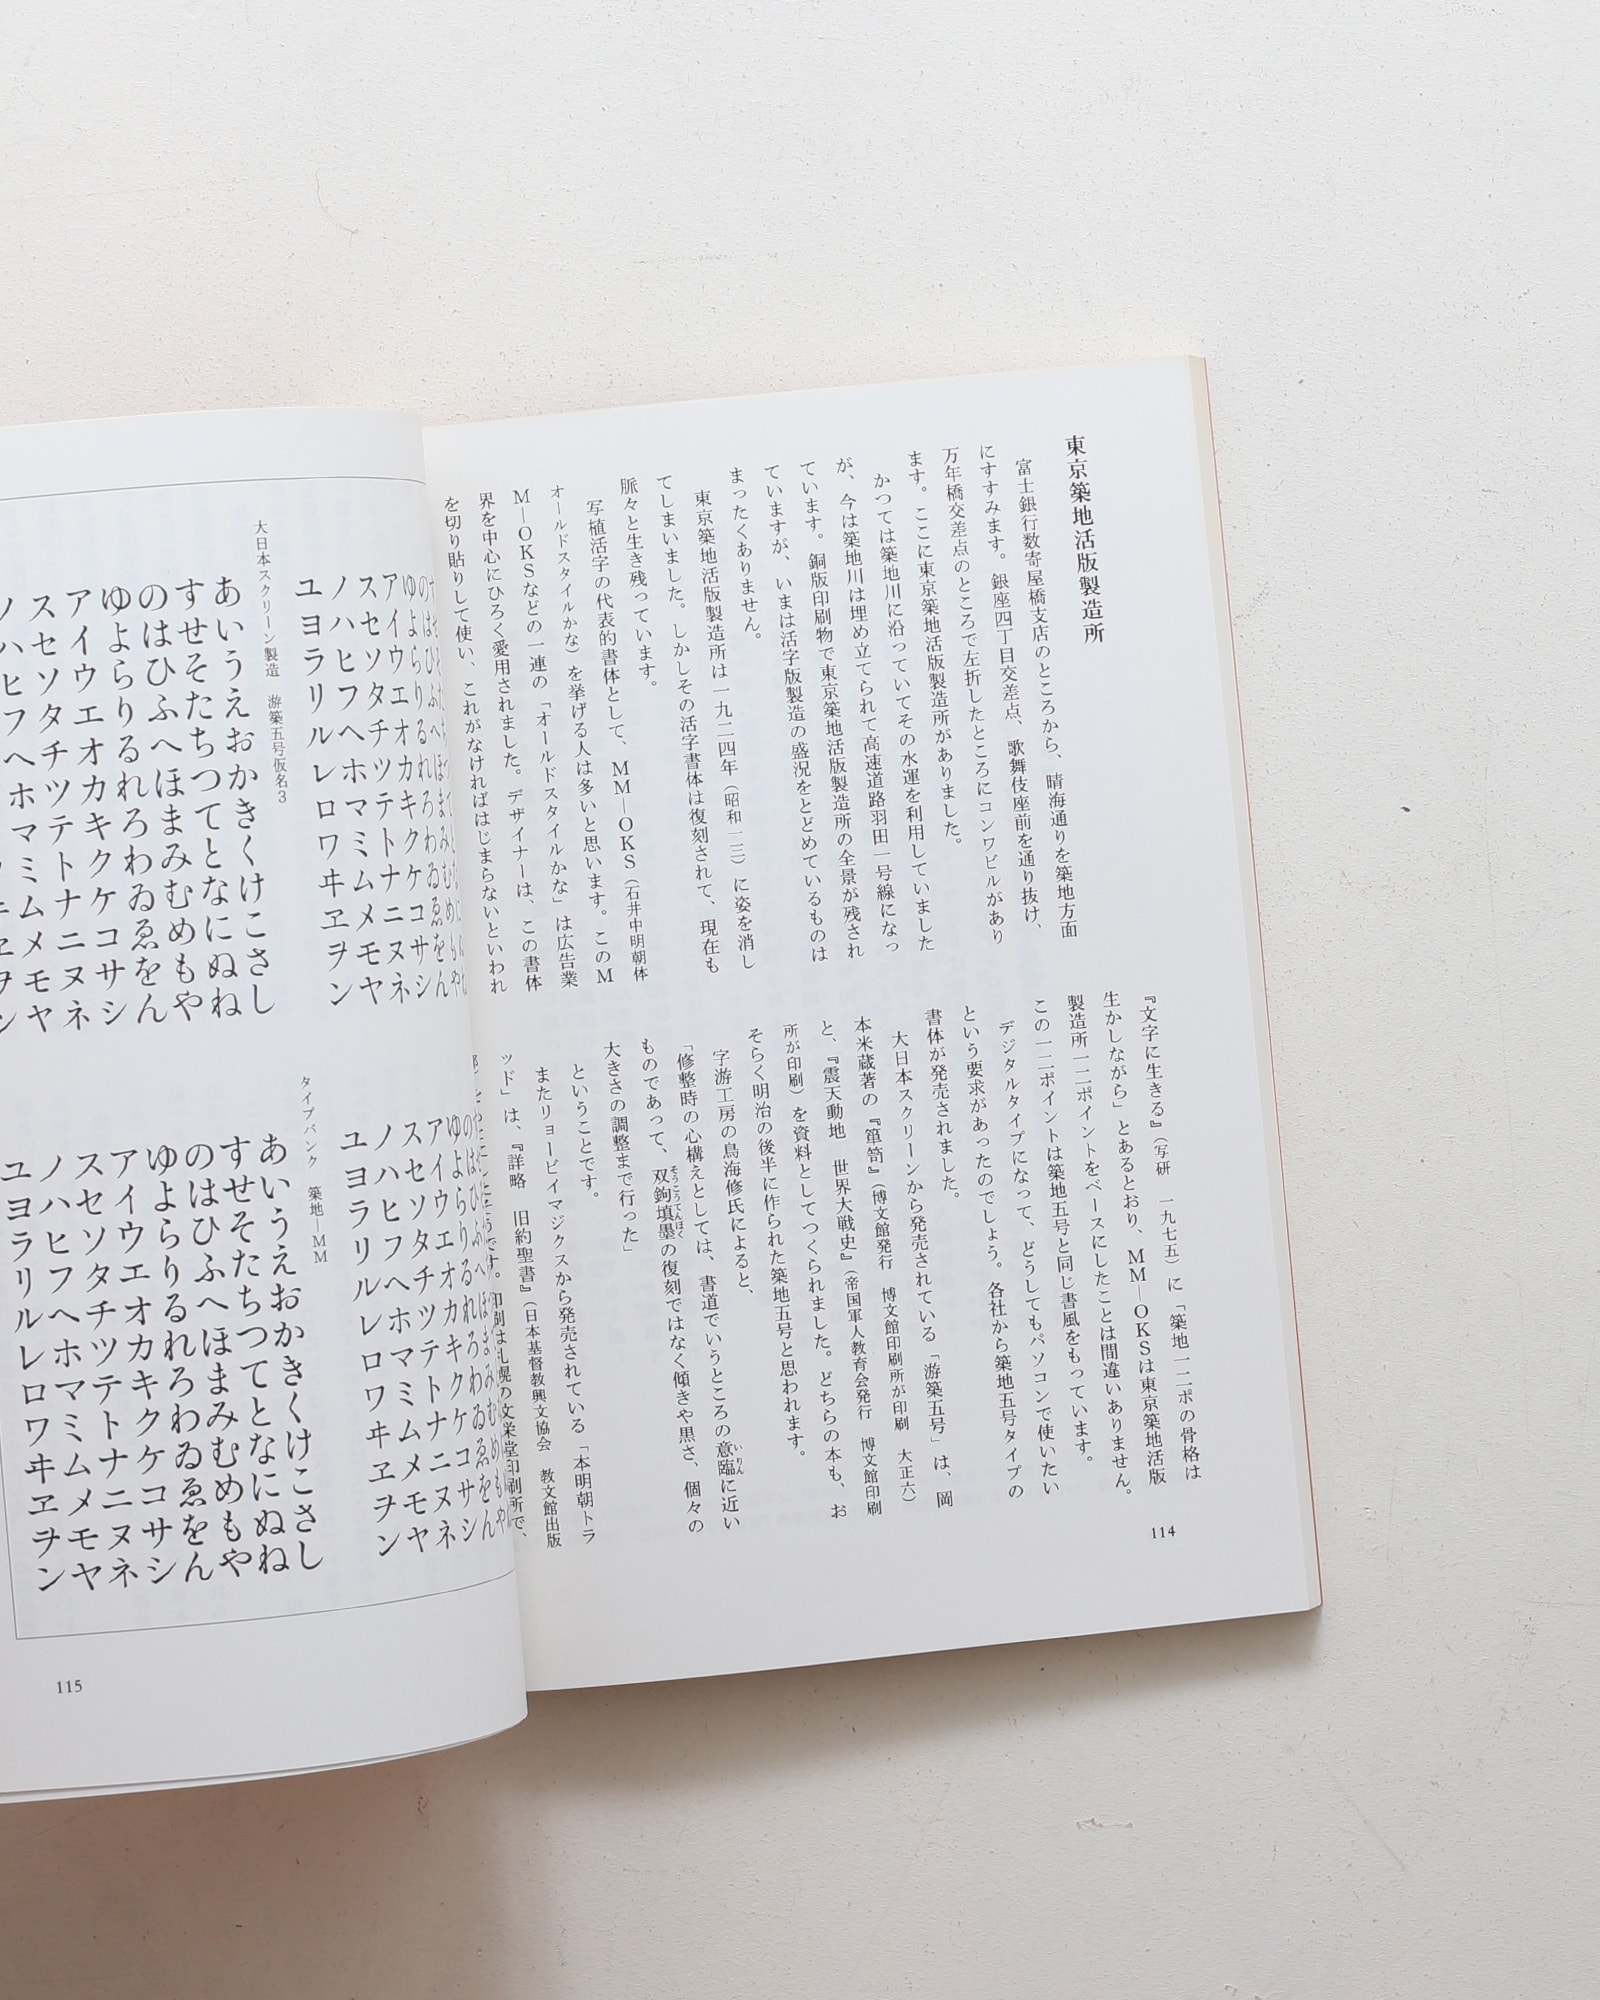 東京築地活版製造所
富士銀行数寄屋橋支店のところから、晴海通りを築地方面
にすすみます。銀座四丁目交差点、歌舞伎座前を通り抜け、
万年橋交差点のところで左折したところにコンワビルがあり
ます。ここに東京築地活版製造所がありました。
かつては築地川に沿っていてその水運を利用していました
が、今は築地川は埋め立てられて高速道路羽田一号線になっ
ています。銅版印刷物で東京築地活版製造所の全景が残され
ていますが、いまは活字版製造の盛況をとどめているものは
まったくありません。
東京築地活版製造所は一九三四年(昭和一三)に姿を消し
てしまいました。しかしその活字書体は復刻されて、現在も
脈々と生き残っています。
写植活字の代表的書体として、MM—OKS(石井中明朝体
オールドスタイルかな)を挙げる人は多いと思います。このM
M—OKSなどの一連の「オールドスタイルかな」は広告業
界を中心にひろく愛用されました。デザイナーは、この書体
を切り貼りして使い、これがなければはじまらないといわれ
『文字に生きる』(写研 一九七五)に「築地一二ポの骨格は
生かしながら」とあるとおり、MM—OKSは東京築地活版
製造所一二ポイントをベースにしたことは間違いありません。
この一二ポイントは築地五号と同じ書風をもっています。
デジタルタイプになって、どうしてもパソコンで使いたい
という要求があったのでしょう。各社から築地五号タイプの
書体が発売されました。
大日本スクリーンから発売されている「游築五号」は、岡
本米蔵著の『箪笥』(博文館発行 博文館印刷所が印刷 大正六)
と、『震天動地 世界大戦史』(帝国軍人教育会発行 博文館印刷
所が印刷)を資料としてつくられました。どちらの本も、お
そらく明治の後半に作られた築地五号と思われます。
字游工房の鳥海修氏によると、
「修整時の心構えとしては、書道でいうところの意臨に近い
ものであって、双鉤填墨の復刻ではなく傾きや黒さ、個々の
大きさの調整まで行った」
ということです。
またリョービイマジクスから発売されている「本明朝トラ
ッド」は、『詳略 旧約聖書』(日本基督教興文協会 教文館出版
です。印刷は札幌の文栄堂印刷所で、
114
すせそたちつてとなにぬね
のはひふへほまみむめもや
ゆよらりるれろわゐゑをん
アイウエオカキクケコサシ
スセソタチツテトナニヌネ
ノハヒフヘホマミムメモヤ
ユヨラリルレロワヰヱヲン
大日本スクリーン製造 游築五号仮名3
あいうえおかきくけこさし
すせそたちつてとなにぬね
のはひふへほまみむめもや
ゆよらりるれろわゐゑをん
アイウエオカキクケコサシ
スセソタチツテトナニヌネ
ノハヒフヘホマミムメモヤ
のはひふへほまみむめもや
ゆよらりるれろわゐゑをん
アイウエオカキクケコサシ
スセソタチツテトナニヌネ
ノハヒフヘホマミムメモヤ
ユヨラリルレロワヰヱヲン
タイプバンク 築地—MM
あいうえおかきくけこさし
すせそたちつてとなにぬね
のはひふへほまみむめもや
ゆよらりるれろわゐゑをん
アイウエオカキクケコサシ
スセソタチツテトナニヌネ
ノハヒフヘホマミムメモヤ
ユヨラリルレロワヰヱヲン
115